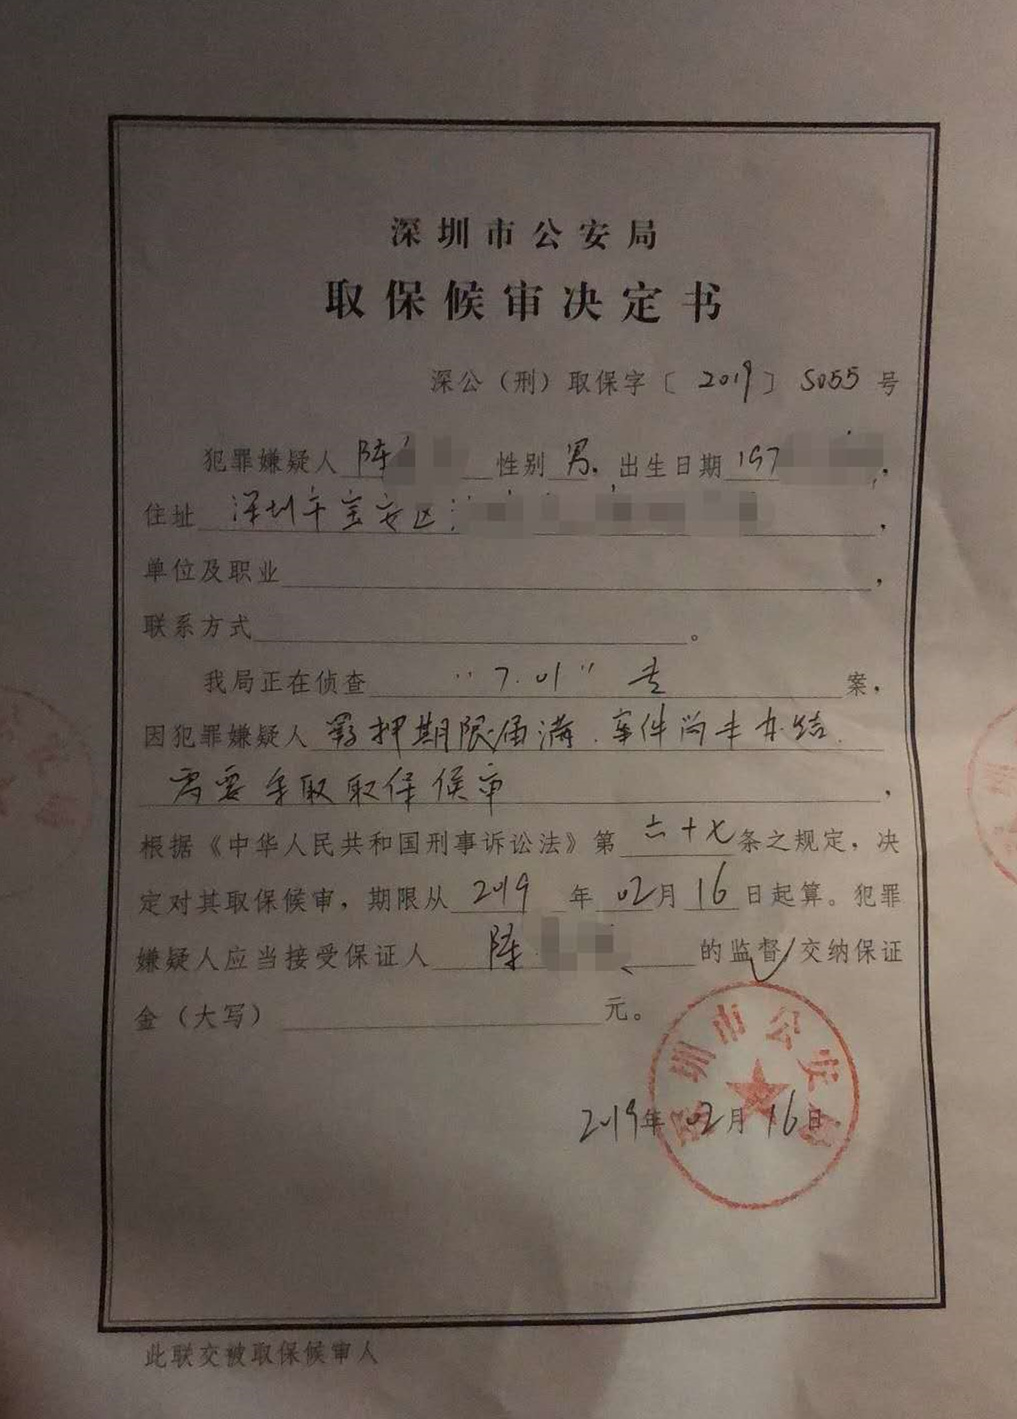 深圳市公安局
取保候审决定书
深公（刑）取保字〔2019〕5055号
犯罪嫌疑人 陈 性别 男. 出生日期 197 ，
住址 深圳市宝安区 ，
单位及职业 ，
联系方式 。
我局正在侦查 “7.01” 专 案，
因犯罪嫌疑人 羁押期限届满.案件尚未办结.
需要采取取保候审 ，
根据《中华人民共和国刑事诉讼法》第 六十七 条之规定，决
定对其取保候审，期限从 2019 年 02 月 16 日起算。犯罪
嫌疑人应当接受保证人 陈 的监督/交纳保证
金（大写） 元。
深圳市公安局
2019年 02月 16日
此联交被取保候审人